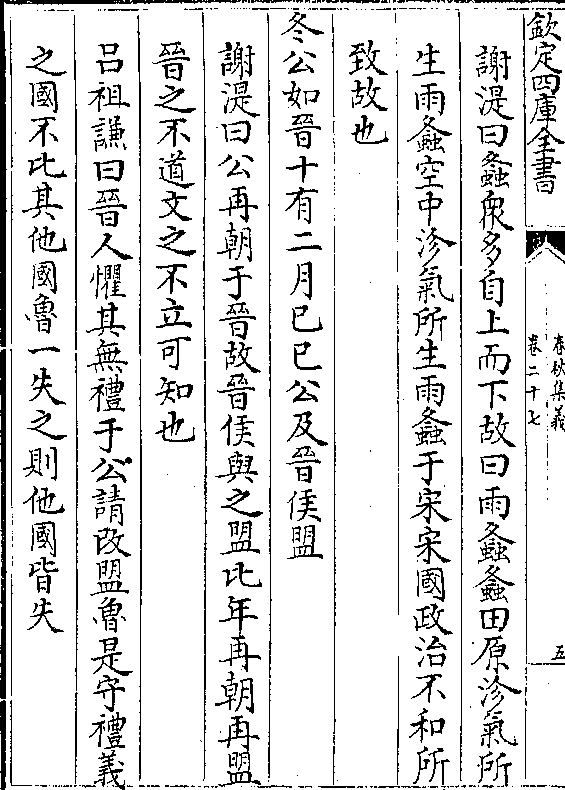 欽定四庫全書
春秋集義
卷二十七
五
謝湜曰螽衆多自上而下故曰雨螽螽田原沴氣所
生雨螽空中沴氣所生雨螽于宋宋國政治不和所
致故也
冬公如晉十有二月己巳公及晉侯盟
謝湜曰公再朝于晉故晉侯與之盟比年再朝再盟
晉之不道文之不立可知也
吕祖謙曰晉人懼其無禮于公請改盟魯是守禮義
之國不比其他國魯一失之則他國皆失